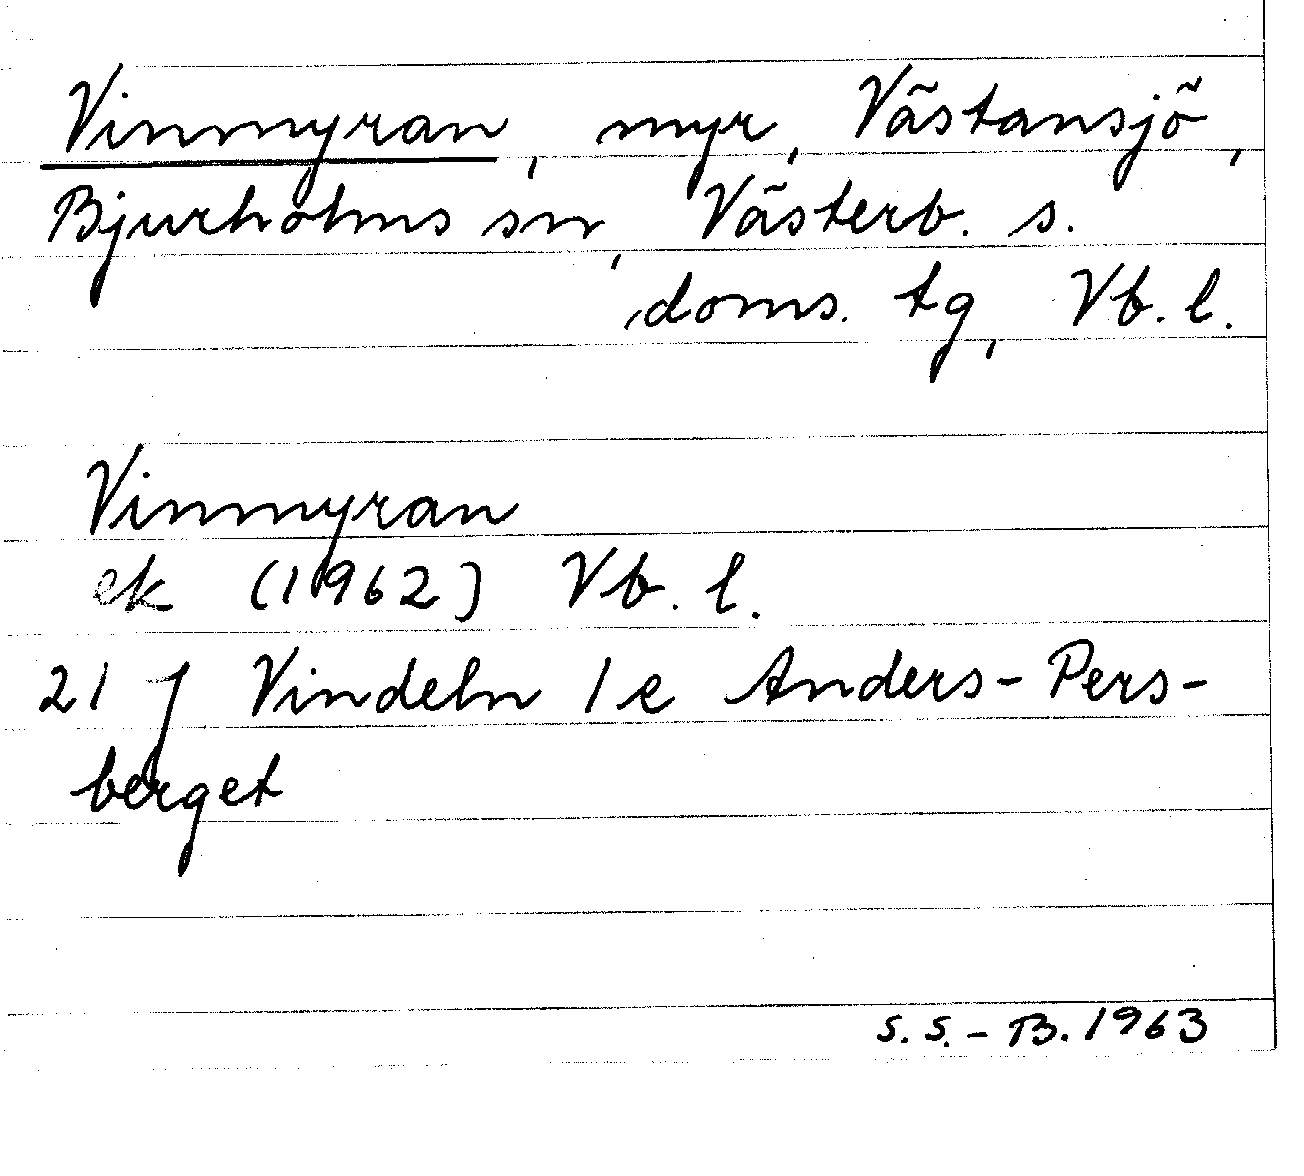 Vinmyran, myr, Västansjö,
Bjurholms sn, Västerb. s.
doms. tg, Vb. l.
Vinmyran
ek (1962) Vb. l.
21 J Vindeln 1 e Anders-Pers-
berget
S. S. - B. 1963